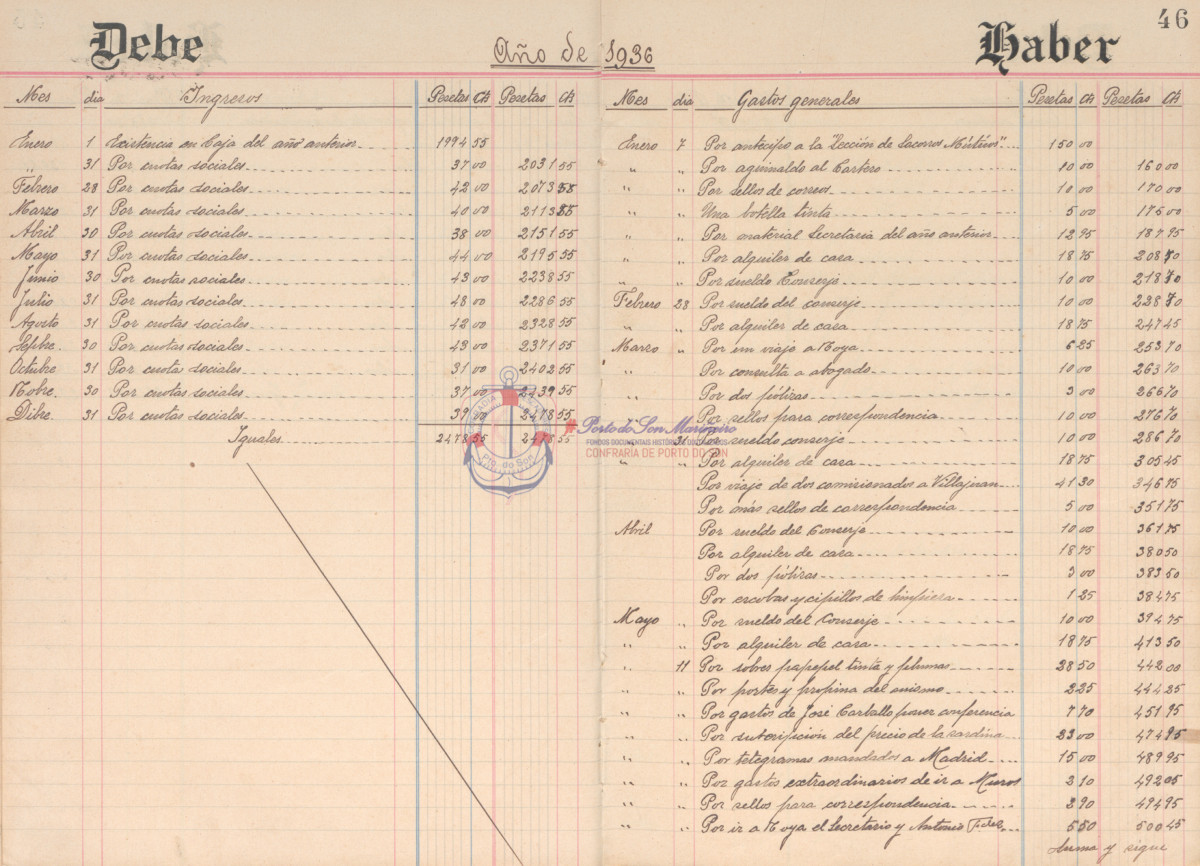 46
Debe Año de 1936 Haber
Mes dia Ingresos Pesetas Cts Pesetas Cts
Enero 1 Existencia en Caja del año anterior 1994 55
" 31 Por cuotas sociales 37 00 2031 55
Febrero 28 Por cuotas sociales 42 00 2073 55
Marzo 31 Por cuotas sociales 40 00 2113 55
Abril 30 Por cuotas sociales 38 00 2151 55
Mayo 31 Por cuotas sociales 44 00 2195 55
Junio 30 Por cuotas sociales 43 00 2238 55
Julio 31 Por cuotas sociales 48 00 2286 55
Agosto 31 Por cuotas sociales 42 00 2328 55
Sepbre. 30 Por cuotas sociales 43 00 2371 55
Octubre 31 Por cuota sociales 31 00 2402 55
Nobre. 30 Por cuotas sociales 37 00 2439 55
Dibre. 31 Por cuotas sociales 39 00 2478 55
Iguales 2478 55 2478 55
Mes dia Gastos generales Pesetas Cts Pesetas Cts
Enero 7 Por anticipo a la "Sección de Socorros Mútúos" 150 00
" " Por aguinaldo al Cartero 10 00 160 00
" " Por sellos de correos 10 00 170 00
" " Una botella tinta 5 00 175 00
" " Por material Secretaria del año anterior 12 95 187 95
" " Por alquiler de casa 18 75 208 70
" " Por sueldo Conserje 10 00 218 70
Febrero 28 Por sueldo del conserje 10 00 228 70
" " Por alquiler de casa 18 75 247 45
Marzo " Por un viaje a Noya 6 25 253 70
" " Por consulta a abogado 10 00 263 70
" " Por dos pólizas 3 00 266 70
" " Por sellos para correspondencia 10 00 276 70
" 31 Por sueldo conserje 10 00 286 70
" " Por alquiler de casa 18 75 305 45
Por viaje de dos comisionados a Villajuan 41 30 346 75
Por más sellos de correspondencia 5 00 351 75
Abril Por sueldo del Conserje 10 00 361 75
Por alquiler de casa 18 75 380 50
Por dos pólizas 3 00 383 50
Por escobas y cipillos de limpieza 1 25 384 75
Mayo " Por sueldo del Conserje 10 00 394 75
" " Por alquiler de casa 18 75 413 50
" 11 Por sobres papepel tinta y plumas 28 50 442 00
" " Por portes y propina del mismo 2 25 444 25
" " Por gastos de José Carballo poner conferencia 7 70 451 95
" " Por sutoripción del precio de la sardina 23 00 474 95
" " Por telegramas mandados a Madrid 15 00 489 95
" " Por gastos extraordinarios de ir a Muros 2 10 492 05
" " Por sellos para correspondencia 2 90 494 95
" " Por ir a Noya el Secretario y Antonio Fidel 5 50 500 45
Suma y sigue
Pto. do Son
Porto do Son Mariñeiro
FONDOS DOCUMENTAIS HISTÓRICOS DIXITALIZADOS
CONFRARÍA DE PORTO DO SON